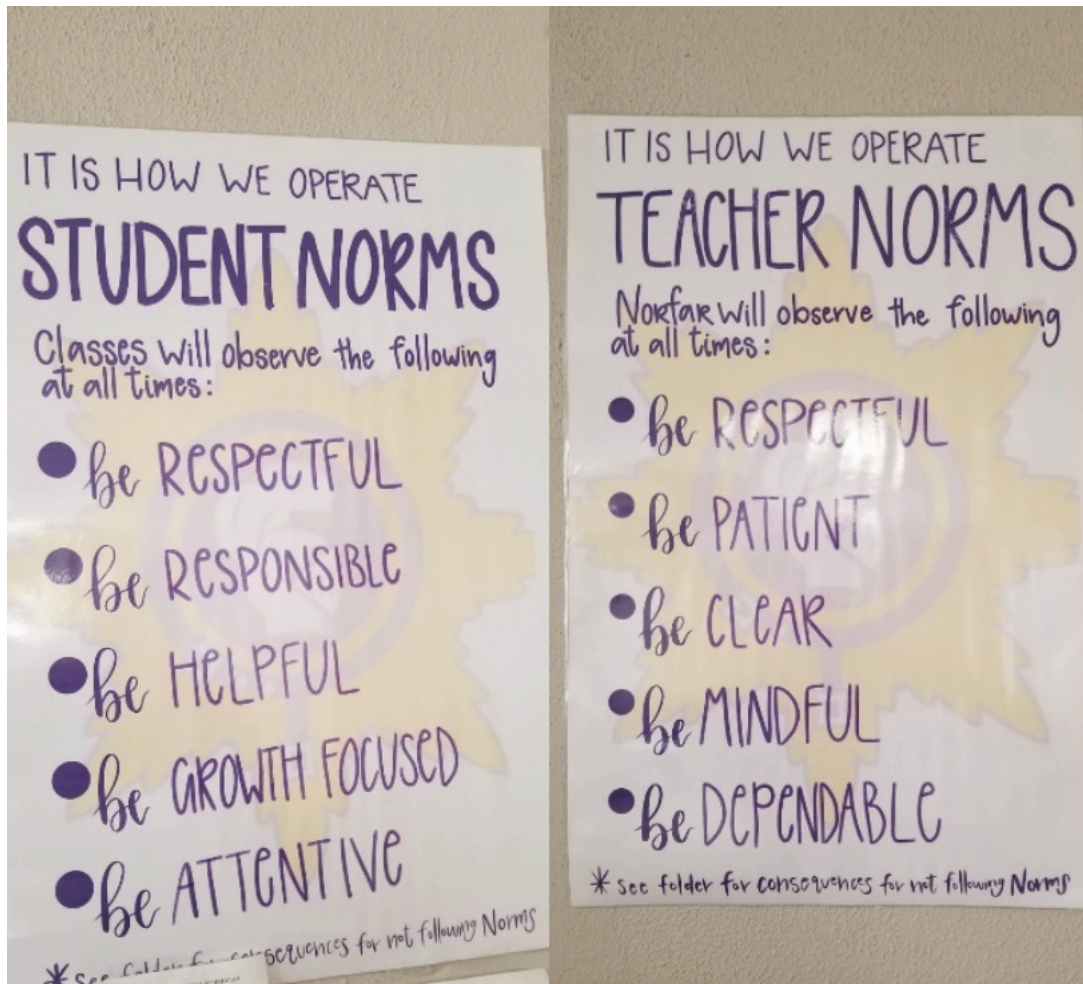 IT IS HOW WE OPERATE
STUDENT NORMS
Classes will observe the following
at all times:
be RESPECTFUL
be RESPONSIBLE
be HELPFUL
be GROWTH FOCUSED
be ATTENTIVE
* See folder for consequences for not following Norms
IT IS HOW WE OPERATE
TEACHER NORMS
Norfar will observe the following
at all times:
be RESPECTFUL
be PATIENT
be CLEAR
be MINDFUL
be DEPENDABLE
* see folder for consequences for not following Norms